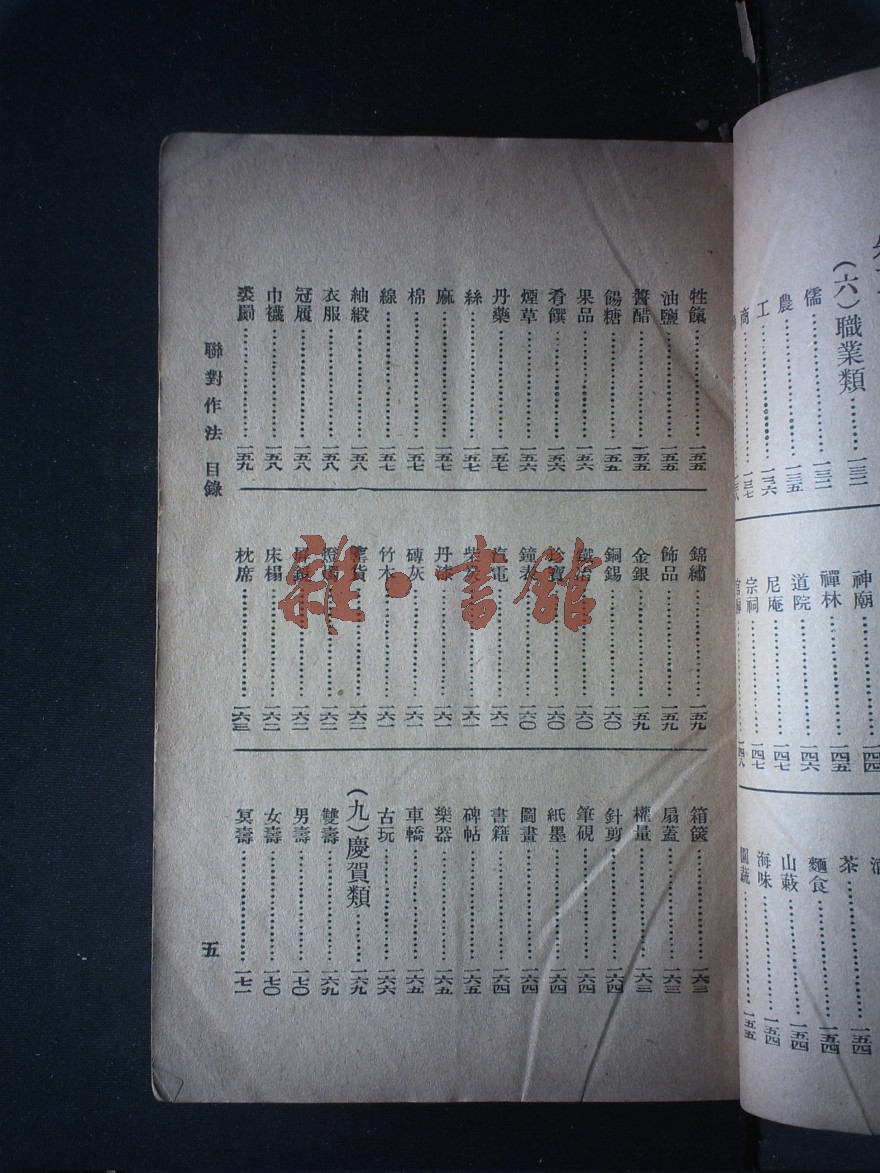 (六)職業類………一三二
儒………一三二
農………一三五
工………一三六
商………一三七
神廟………一四四
禪林………一四五
道院………一四六
尼庵………一四七
宗祠………一四七
茶………一五四
麵食………一五四
山蔌………一五四
海味………一五四
園蔬………一五五
牲饩………一五五
油鹽………一五五
醬醋………一五五
餳糖………一五五
果品………一五六
肴饌………一五六
煙草………一五六
丹藥………一五七
絲………一五七
麻………一五七
棉………一五七
線………一五七
紬緞………一五八
衣服………一五八
冠履………一五八
巾襪………一五八
裘罽………一五九
錦繡………一五九
飾品………一五九
金銀………一五九
銅錫………一六〇
鐵冶………一六〇
珍寶………一六〇
鐘表………一六〇
電………一六一
柴炭………一六一
丹漆………一六一
磚灰………一六一
竹木………一六一
貨………一六二
燈燭………一六二
屏鏡………一六二
床榻………一六二
枕席………一六三
箱篋………一六三
扇蓋………一六三
權量………一六三
針剪………一六四
筆硯………一六四
紙墨………一六四
圖畫………一六四
書籍………一六四
碑帖………一六五
樂器………一六五
車轎………一六五
古玩………一六六
(九)慶賀類………一六九
雙壽………一六九
男壽………一七〇
女壽………一七〇
冥壽………一七一
聯對作法 目錄
五
雜·書館